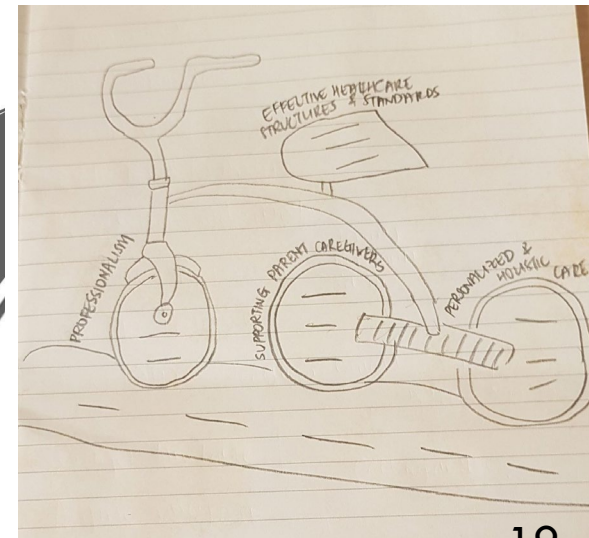 EFFECTIVE HEALTHCARE
STRUCTURES & STANDARDS
PROFESSIONALISM
SUPPORTING PARENT CAREGIVERS
PERSONALIZED &
HOLISTIC CARE